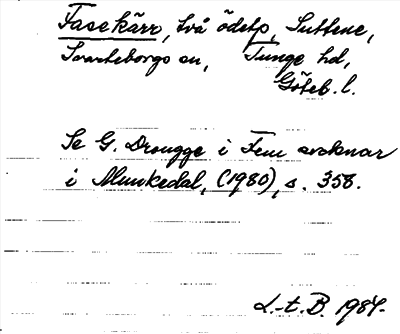 Fasekärr, två ödetp, Suttene,
Svarteborgs sn, Tunge hd,
Göteb. l.
Se G. Drougge i Fem socknar
i Munkedal, (1980), s. 358.
L.-t. B. 1984.